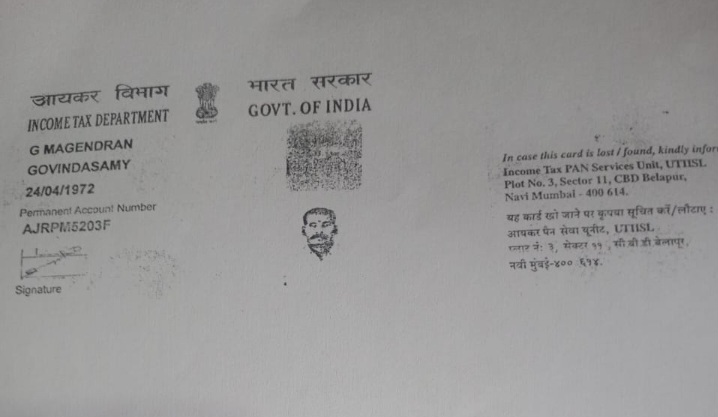 आयकर विभाग
INCOME TAX DEPARTMENT
भारत सरकार
GOVT. OF INDIA
G MAGENDRAN
GOVINDASAMY
24/04/1972
Permanent Account Number
AJRPM5203F
Signature
In case this card is lost / found, kindly infor
Income Tax PAN Services Unit, UTIISL
Plot No. 3, Sector 11, CBD Belapur,
Navi Mumbai - 400 614.
यह कार्ड खो जाने पर कृपया सूचित करें/लौटाए :
आयकर पैन सेवा यूनीट, UTIISL
प्लाट नं: ३, सेक्टर ११, सी.बी.डी.बेलापूर,
नवी मुंबई-४०० ६१४.